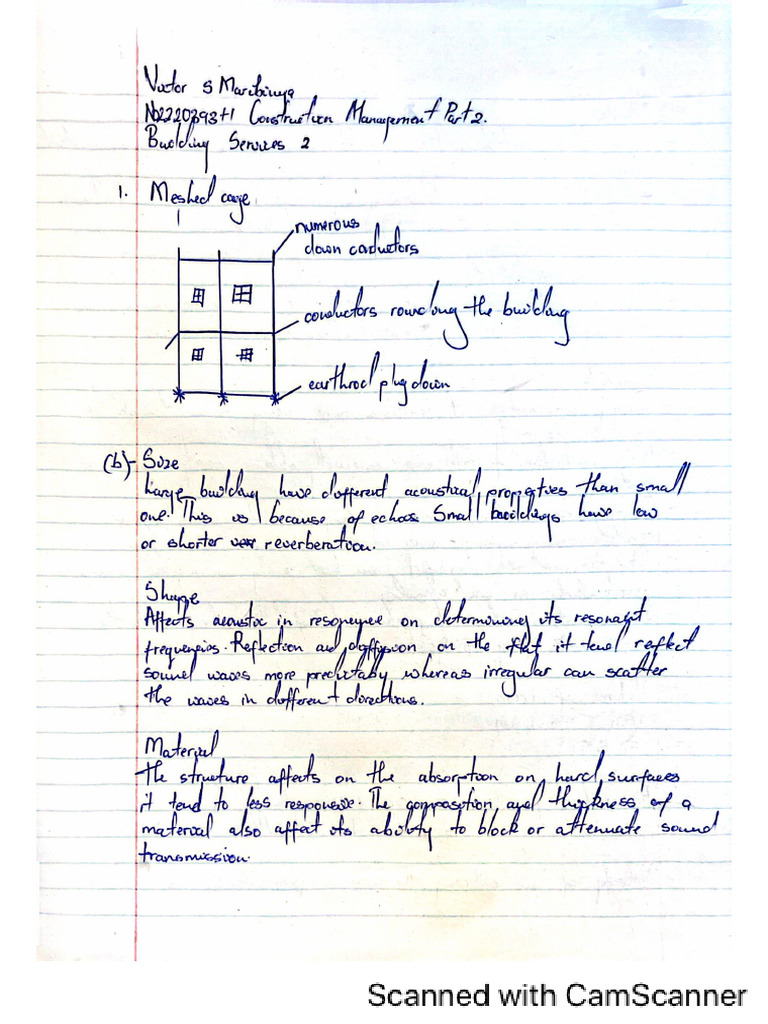 Victor S Maribinya
N02220393H Construction Management Part 2.
Building Services 2
1. Meshed cage
numerous
down conductors
conductors rounding the building
earthrod plug down
(b)- Size
Large building have different acoustical properties than small
one. This is because of echos. Small buildings have low
or shorter reverberation.
Shape
Affects acoustic in response on determining its resonant
frequencies. Reflection and diffusion on the flat it tend reflect
sound waves more predictably whereas irregular can scatter
the waves in different directions.
Material
The structure affects on the absorption on hard surfaces
it tend to less responsive. The composition and thickness of a
material also affect its ability to block or attenuate sound
transmission.
Scanned with CamScanner